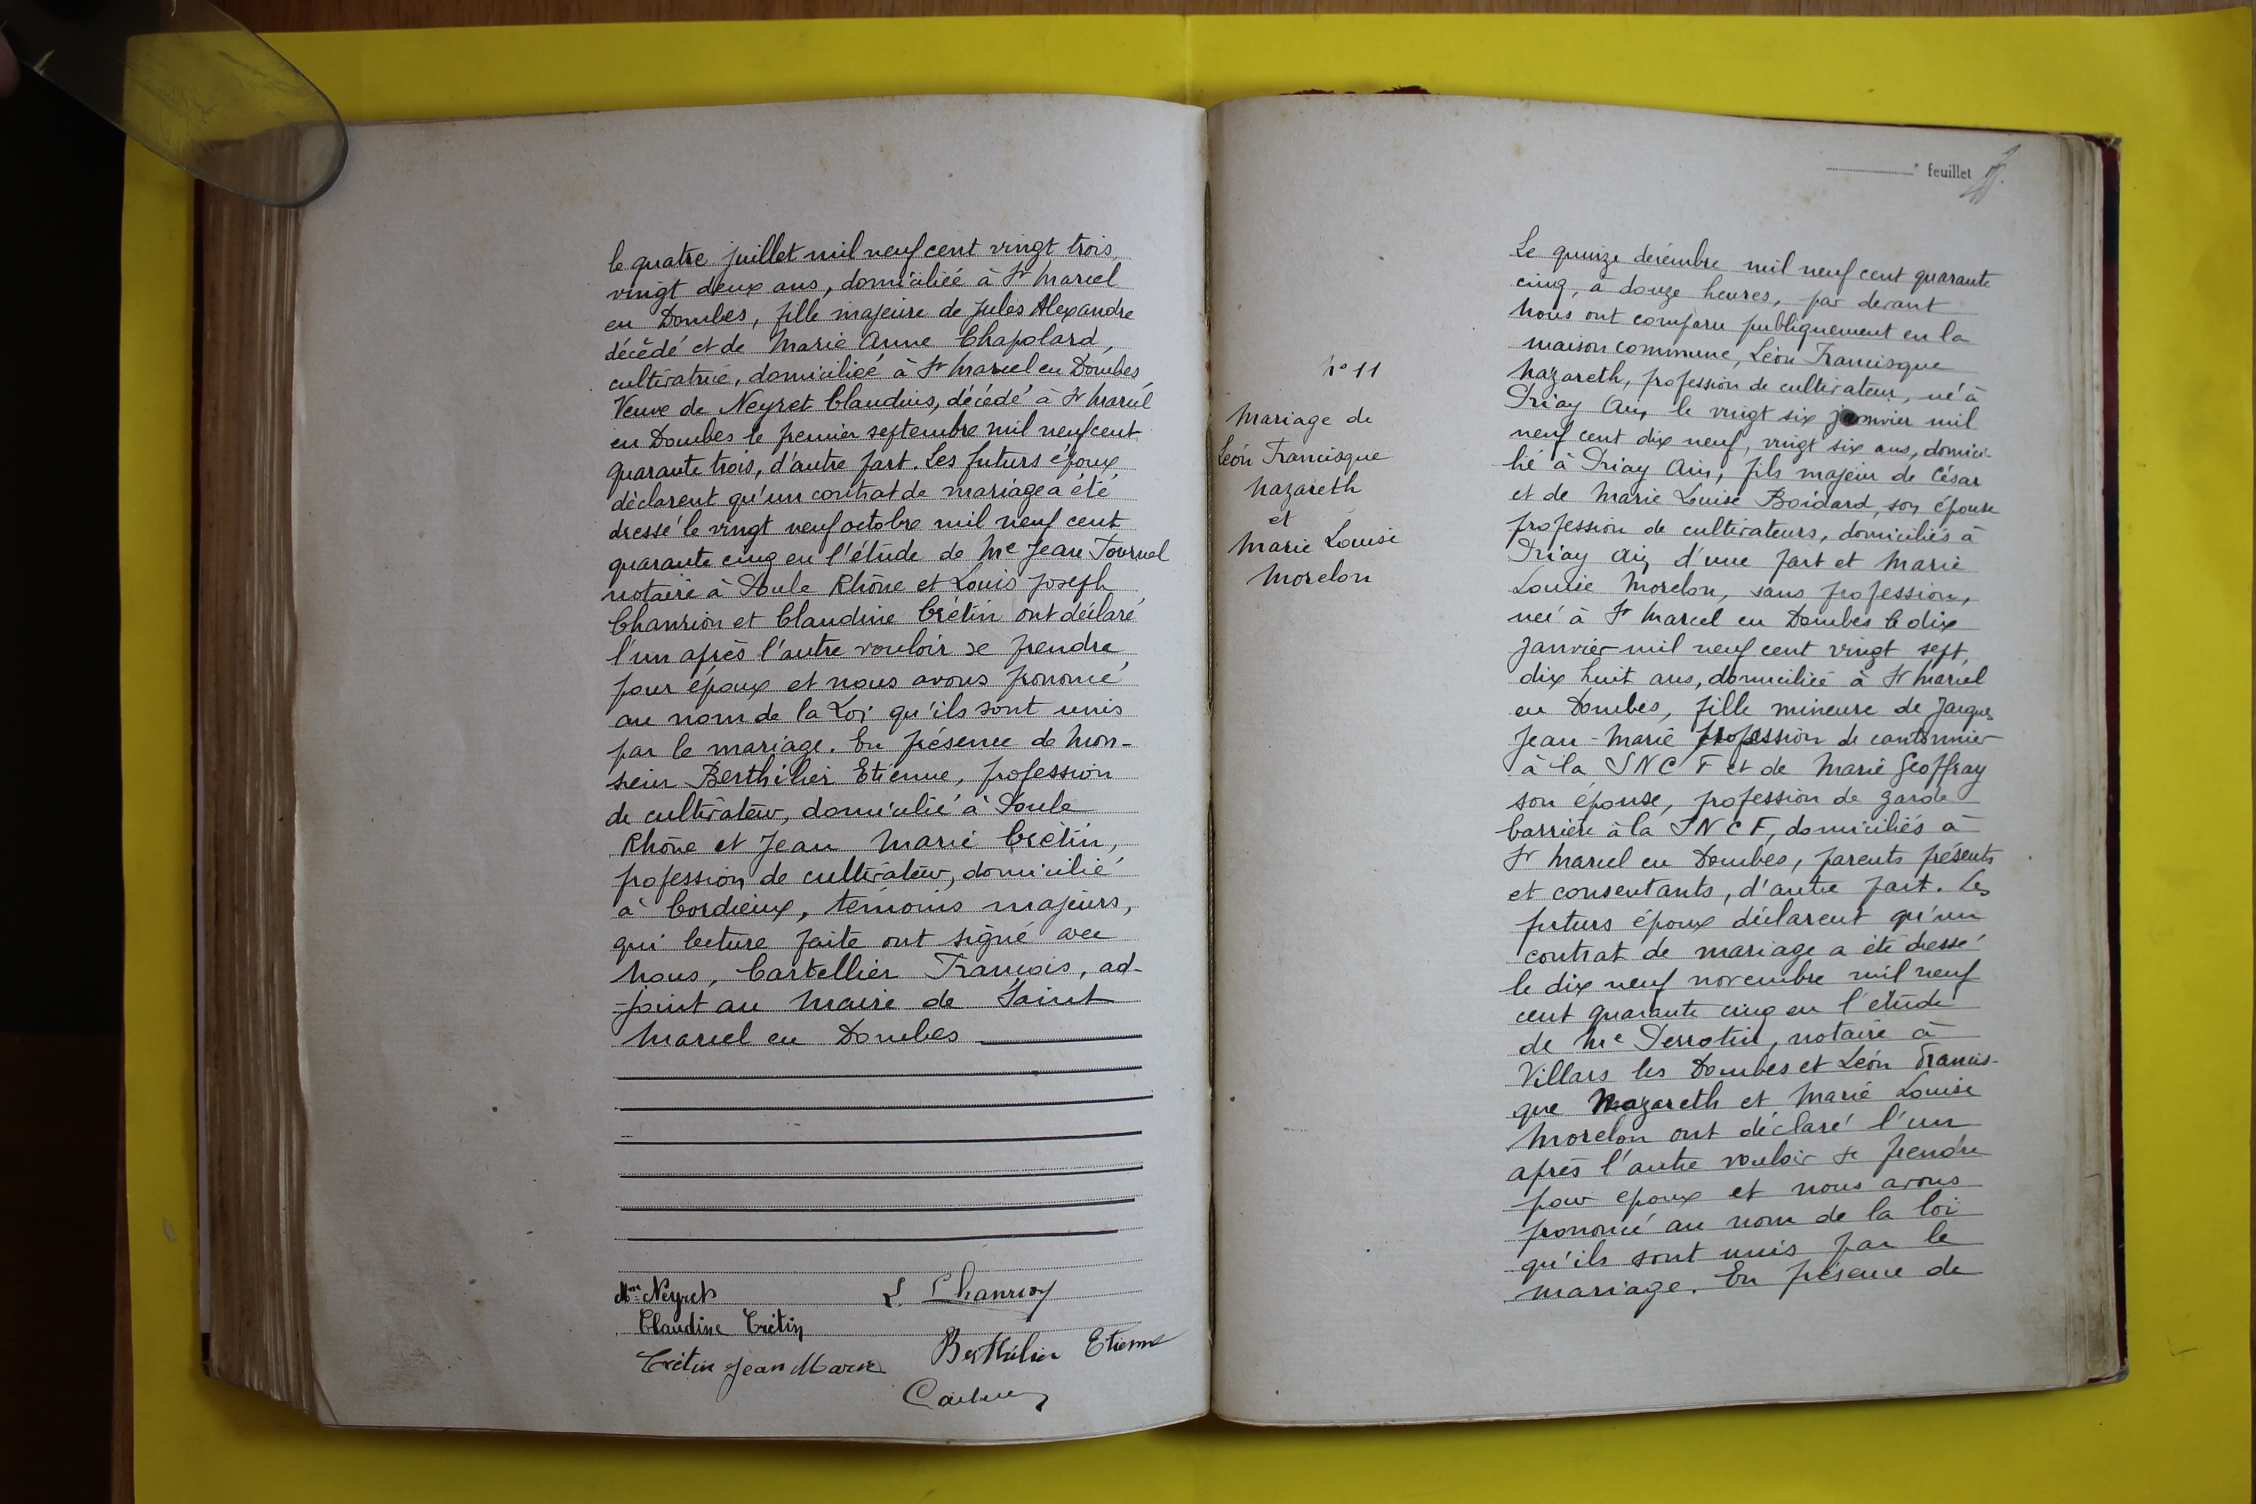 le quatre juillet mil neuf cent vingt trois,
vingt deux ans, domiciliée à St Marcel
en Dombes, fille majeure de Jules Alexandre
décédé et de Marie Anne Chapolard,
cultivatrice, domiciliée à St Marcel en Dombes,
Veuve de Neyret Claudius, décédé à St Marcel
en Dombes le premier septembre mil neuf cent
quarante trois, d'autre part. Les futurs époux
déclarent qu'un contrat de mariage a été
dressé le vingt neuf octobre mil neuf cent
quarante cinq en l'étude de Me Jean Tournel
notaire à Poule Rhône et Louis Joseph
Chanrion et Claudine Crétin ont déclaré
l'un après l'autre vouloir se prendre
pour époux et nous avons prononcé
au nom de la Loi qu'ils sont unis
par le mariage. En présence de Mon-
sieur Berthilier Etienne, profession
de cultivateur, domicilié à Poule
Rhône et Jean Marie Crétin,
profession de cultivateur, domicilié
à Cordieux, témoins majeurs,
qui lecture faite ont signé avec
Nous, Cartellier François, ad-
-joint au Maire de Saint
Marcel en Dombes
Mme Neyret L. Chanrion
Claudine Crétin
Crétin Jean Marie Berthilier Etienne
feuillet
N° 11
Mariage de
Léon Francisque
Nazareth
et
Marie Louise
Morelon
Le quinze décembre mil neuf cent quarante
cinq, à douze heures, par devant
Nous ont comparu publiquement en la
maison commune, Léon Francisque
Nazareth, profession de cultivateur, né à
Priay Ain, le vingt six janvier mil
neuf cent dix neuf, vingt six ans, domici-
lié à Priay Ain, fils majeur de César
et de Marie Louise Boidard, son épouse
profession de cultivateurs, domiciliés à
Priay Ain, d'une part et Marie
Louise Morelon, sans profession,
née à St Marcel en Dombes le dix
janvier mil neuf cent vingt sept,
dix huit ans, domiciliée à St Marcel
en Dombes, fille mineure de Jacques
Jean-Marie profession de cantonnier
à la SNCF et de Marie Geoffray
son épouse, profession de garde
barrière à la SNCF, domiciliés à
St Marcel en Dombes, parents présents
et consentants, d'autre part. Les
futurs époux déclarent qu'un
contrat de mariage a été dressé
le dix neuf novembre mil neuf
cent quarante cinq en l'étude
de Me Perrotin, notaire à
Villars les Dombes et Léon Francis-
que Nazareth et Marie Louise
Morelon ont déclaré l'un
après l'autre vouloir se prendre
pour epoux et nous avons
prononcé au nom de la loi
qu'ils sont unis par le
mariage. En présence de